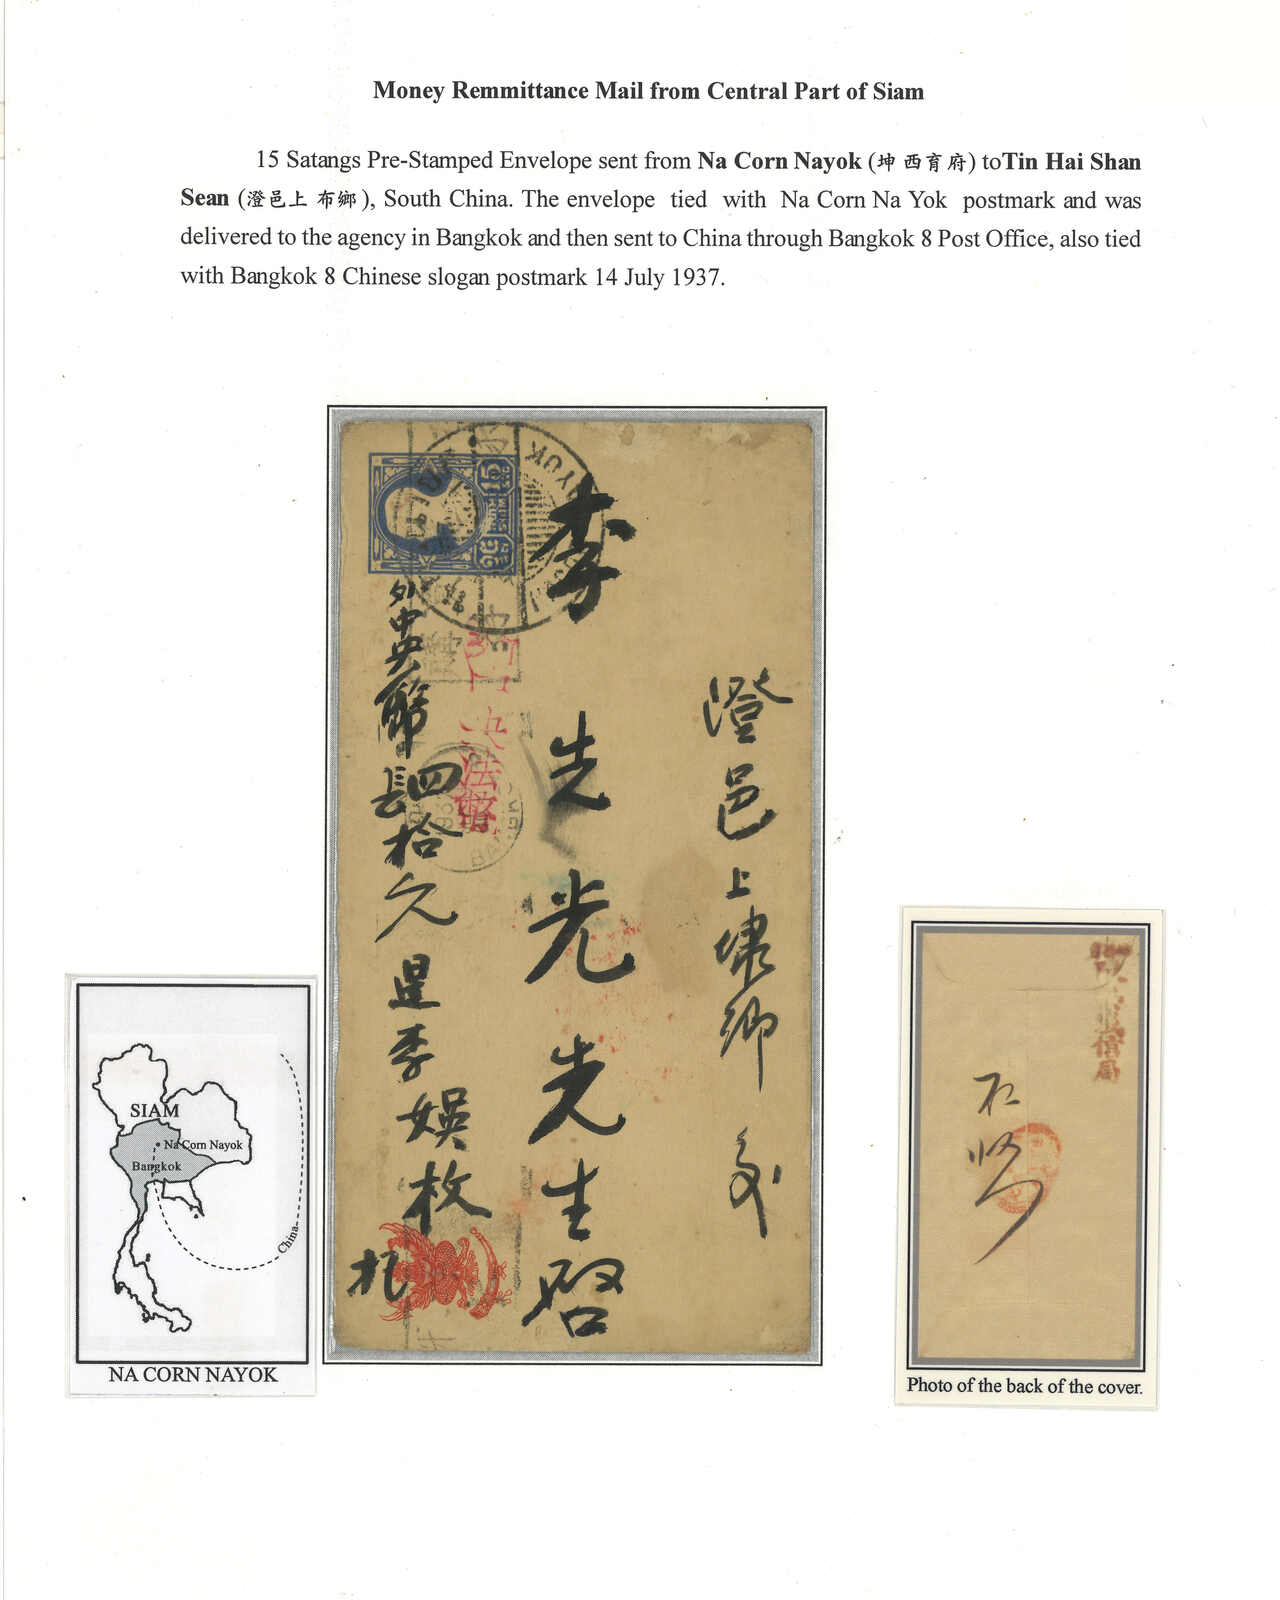 Money Remmittance Mail from Central Part of Siam
15 Satangs Pre-Stamped Envelope sent from Na Corn Nayok (坤西育府) toTin Hai Shan
Sean (澄邑上布鄉), South China. The envelope tied with Na Corn Na Yok postmark and was
delivered to the agency in Bangkok and then sent to China through Bangkok 8 Post Office, also tied
with Bangkok 8 Chinese slogan postmark 14 July 1937.
澄邑上
鄉交
李先光先生啓
外中央幣四拾元
是李娛枚
札
15
SIAM
Na Corn Nayok
Bangkok
China
NA CORN NAYOK
信局
Photo of the back of the cover.